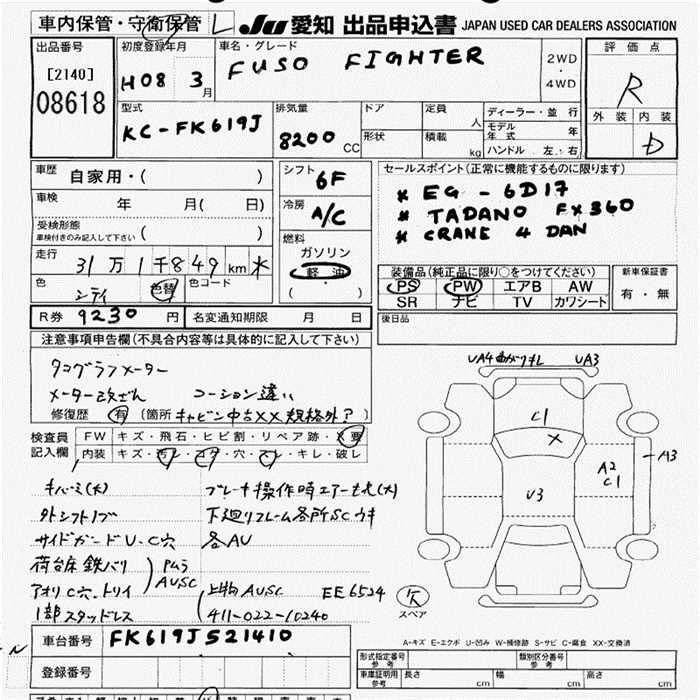 車内保管・守衛保管 L JU 愛知 出品申込書 JAPAN USED CAR DEALERS ASSOCIATION
出品番号
[2140]
08618
初度登録年月
H08 3月
車名・グレード
FUSO FIGHTER
2WD
・
4WD
評価点
R
外装 内装
D
型式
KC-FK619J
排気量
8200 CC
ドア
形状
定員 人
積載 kg
ディーラー・並行
モデル年式 年
ハンドル 左・右
車歴 自家用・( )
車検 年 月( 日)
受検形態
車検付きのみ記入して下さい ( )
走行 31万1千849km ＊
色 シティ 色替 色コード
シフト
6F
冷房
A/C
燃料
ガソリン
軽油
( ・ )
セールスポイント(正常に機能するものに限ります)
* EG - 6D17
* TADANO FX360
* CRANE 4 DAN
装備品(純正品に限り○をつけてください)
PS PW エアB AW
SR ナビ TV カワシート
新車保証書
有・無
R券 9230円 名変通知期限 月 日
後日品
注意事項申告欄(不具合内容等は具体的に記入して下さい)
タコグラフメーター
メーター改ざん コーション違い
修復歴 有 (箇所 キャビン中古XX規格外?)
検査員
記入欄
FW キズ・飛石・ヒビ割・リペア跡・X要
内装 キズ・汚レ・コゲ・穴・スレ・キレ・破レ
キバミ(大) ブレーキ操作時エアーもれ(大)
外シフトノブ 下廻りフレーム各所SCウキ
サイドガードU、C穴 各AU
荷台床鉄バリ
アオリC穴、トリイ
PMラ
AUSC
上物AUSC EE6524
1部スタッドレス
411-022-10240
UA4曲がりモレ UA3
C1
X
A3
A2
C1
U3
スペア
A-キズ E-エクボ U-凹み W-補修跡 S-サビ C-腐食 XX-交換済
車台番号 FK619J521410
登録番号
形式指定番号
参考
類別区分番号
参考
車庫証明用
参考
長さ cm 幅 cm 高さ cm